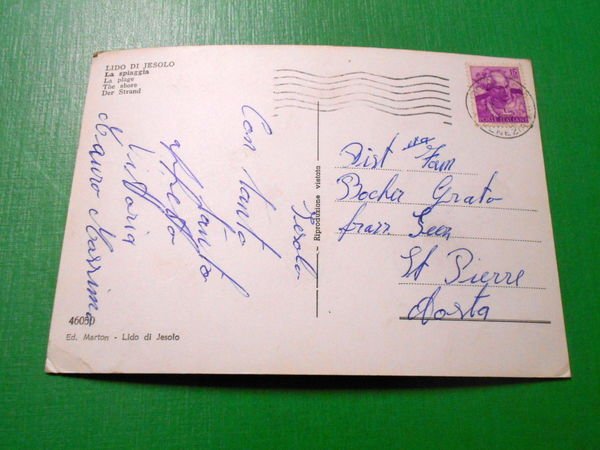 LIDO DI JESOLO
La spiaggia
La plage
The shore
Der Strand
Jesolo
Con tanto
tanto
affetto
Vittoria
Mauro Massimo
46050
Ed. Marton - Lido di Jesolo
Riproduzione vietata
15
POSTE ITALIANE
VENEZIA
Dist ma Fam
Bocher Grato
fraz. Seez
St Pierre
Aosta